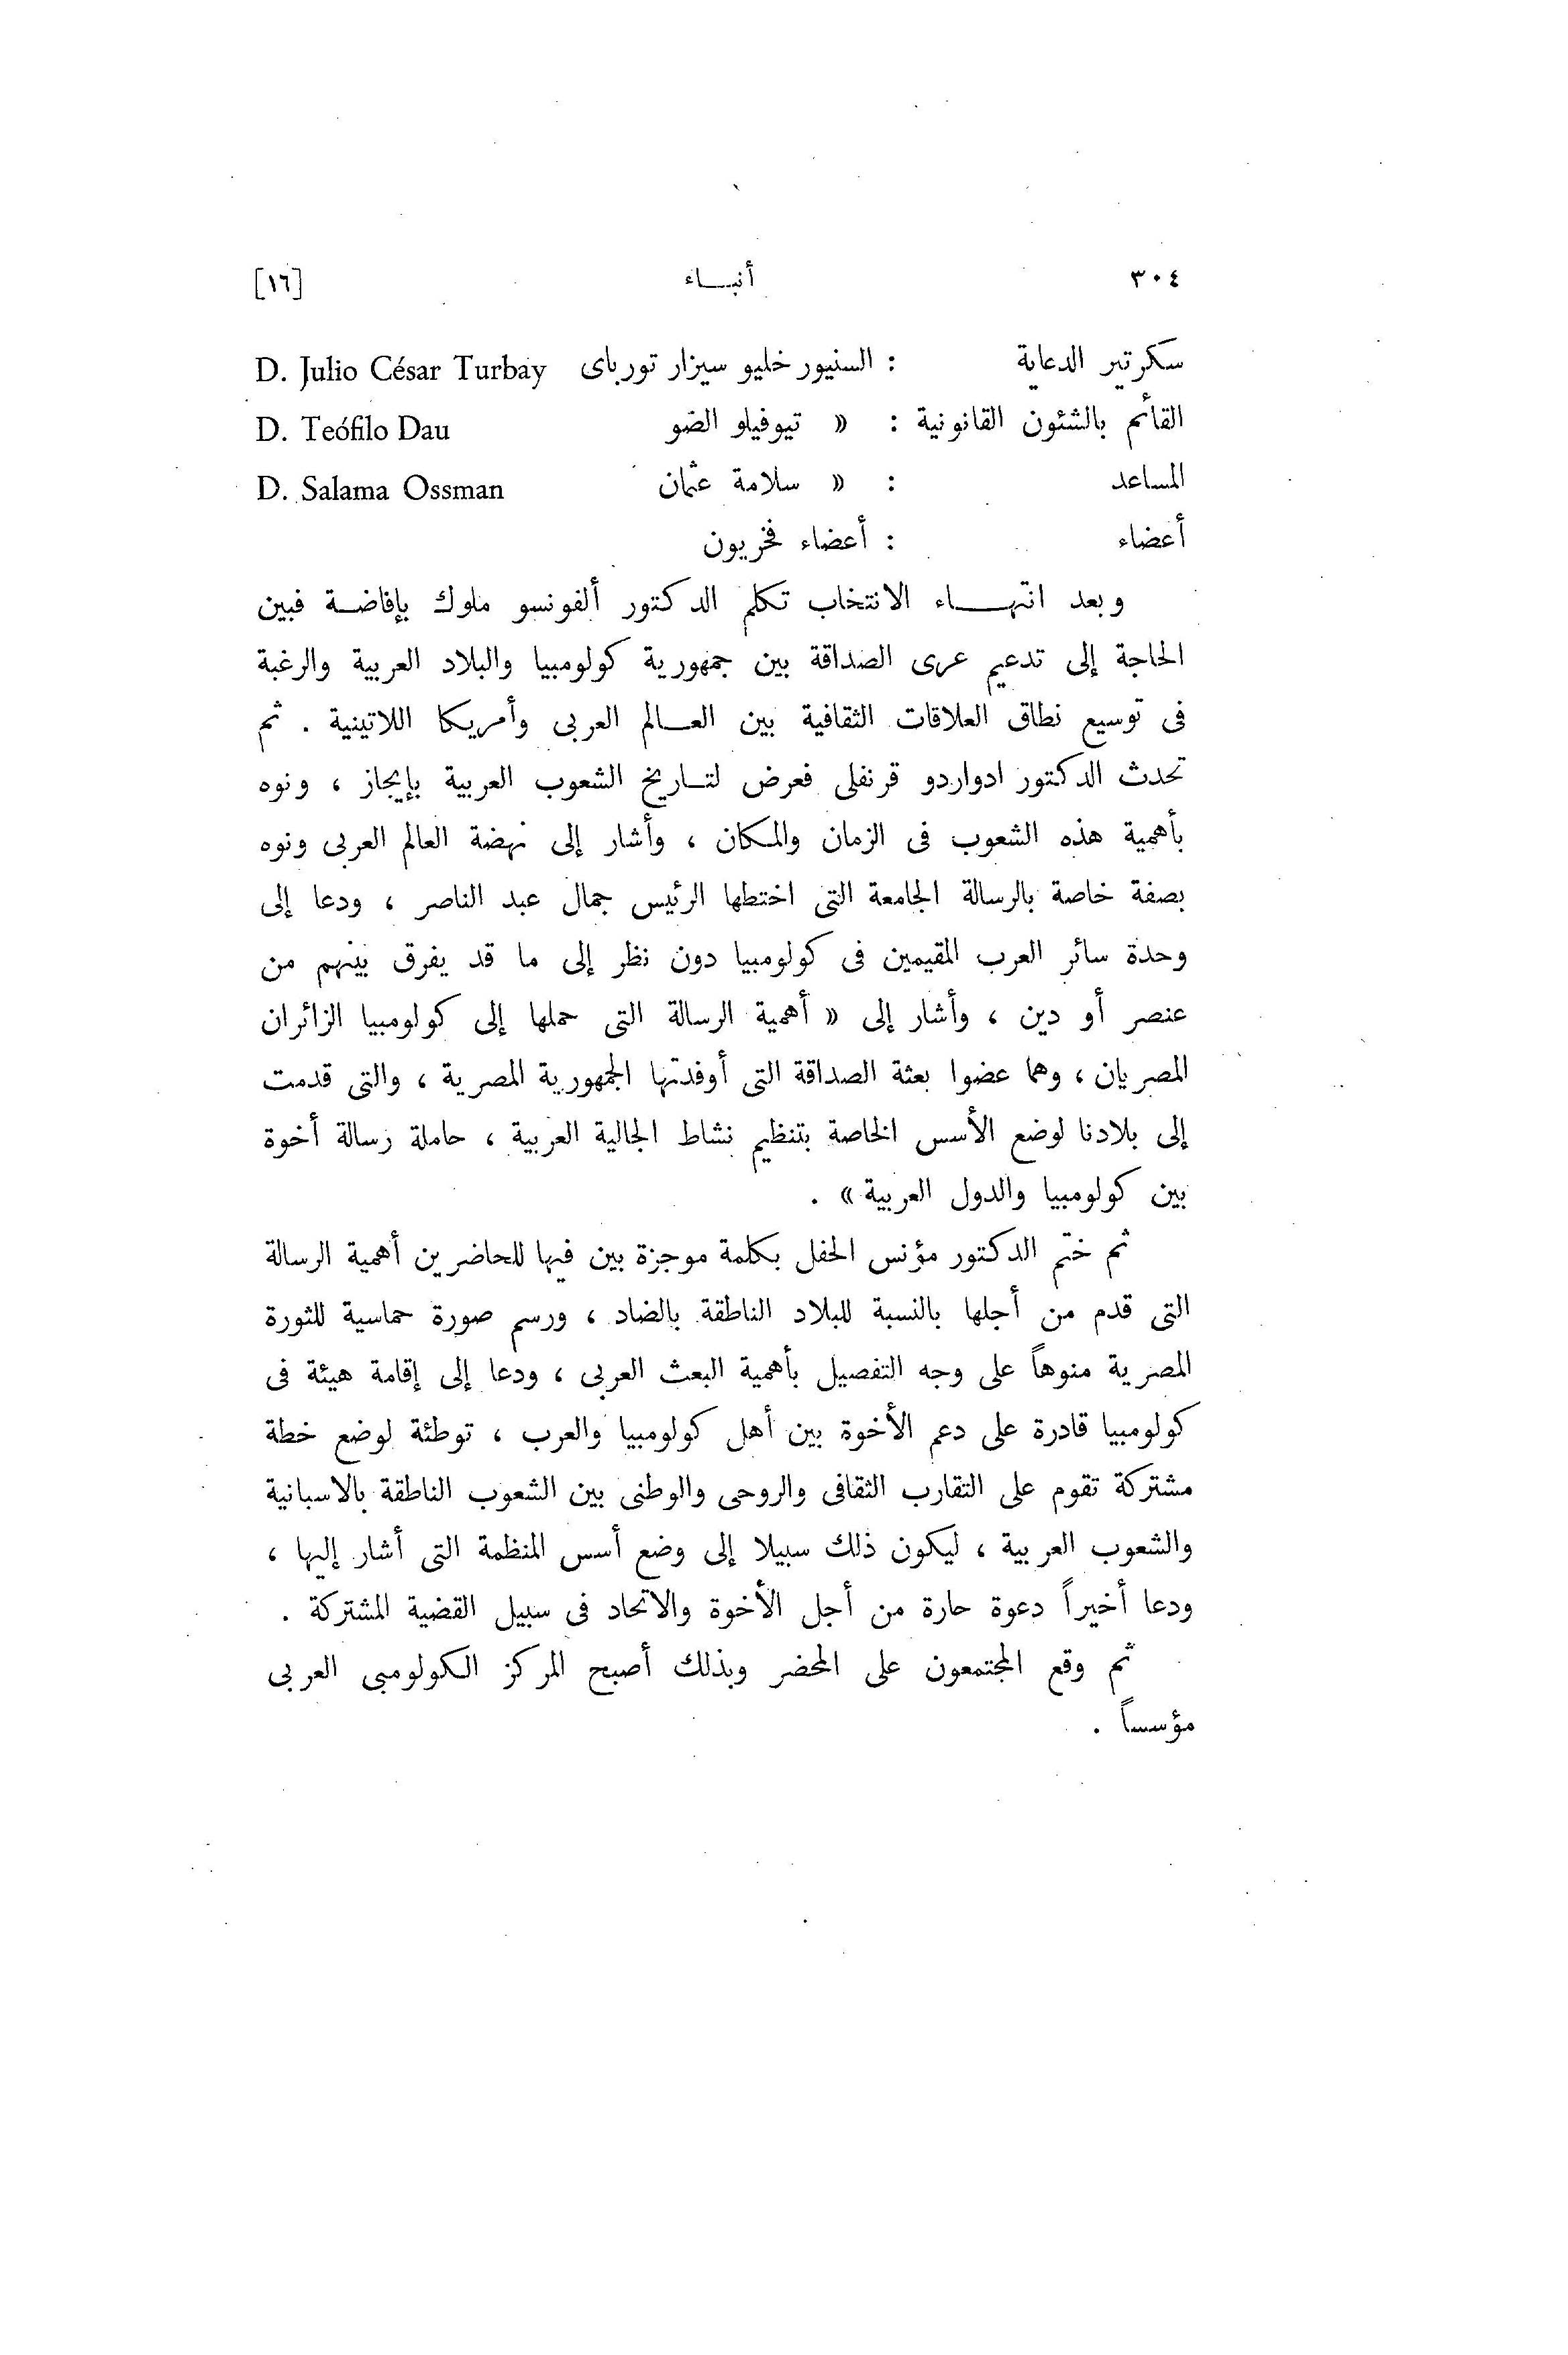 ٣٠٤ أنبـــاء [١٦]
سكرتير الدعاية : السنيور خليو سيزار تورباى D. Julio César Turbay
القائم بالشئون القانونية : « تيوفيلو الضو D. Teófilo Dau
المساعد : « سلامة عثمان D. Salama Ossman
أعضاء : أعضاء فخريون
وبعد انتهـــاء الانتخاب تكلم الدكتور ألفونسو ملوك بإفاضـة فبين
الحاجة إلى تدعيم عرى الصداقة بين جمهورية كولومبيا والبلاد العربية والرغبة
فى توسيع نطاق العلاقات الثقافية بين العـالم العربى وأمريكا اللاتينية . ثم
تحدث الدكتور ادواردو قرنفلى فعرض لتـاريخ الشعوب العربية بإيجاز ، ونوه
بأهمية هذه الشعوب فى الزمان والمكان ، وأشار إلى نهضة العالم العربى ونوه
بصفة خاصة بالرسالة الجامعة التى اختطها الرئيس جمال عبد الناصر ، ودعا إلى
وحدة سائر العرب المقيمين فى كولومبيا دون نظر إلى ما قد يفرق بينهم من
عنصر أو دين ، وأشار إلى « أهمية الرسالة التى حملها إلى كولومبيا الزائران
المصريان ، وهما عضوا بعثة الصداقة التى أوفدتها الجمهورية المصرية ، والتى قدمت
إلى بلادنا لوضع الأسس الخاصة بتنظيم نشاط الجالية العربية ، حاملة رسالة أخوة
بين كولومبيا والدول العربية » .
ثم ختم الدكتور مؤنس الحفل بكلمة موجزة بين فيها للحاضرين أهمية الرسالة
التى قدم من أجلها بالنسبة للبلاد الناطقة بالضاد ، ورسم صورة حماسية للثورة
المصرية منوهاً على وجه التفصيل بأهمية البعث العربى ، ودعا إلى إقامة هيئة فى
كولومبيا قادرة على دعم الأخوة بين أهل كولومبيا والعرب ، توطئة لوضع خطة
مشتركة تقوم على التقارب الثقافى والروحى والوطنى بين الشعوب الناطقة بالاسبانية
والشعوب العربية ، ليكون ذلك سبيلا إلى وضع أسس المنظمة التى أشار إليها ،
ودعا أخيراً دعوة حارة من أجل الأخوة والاتحاد فى سبيل القضية المشتركة .
ثم وقع المجتمعون على المحضر وبذلك أصبح المركز الكولومبى العربى
مؤسساً .